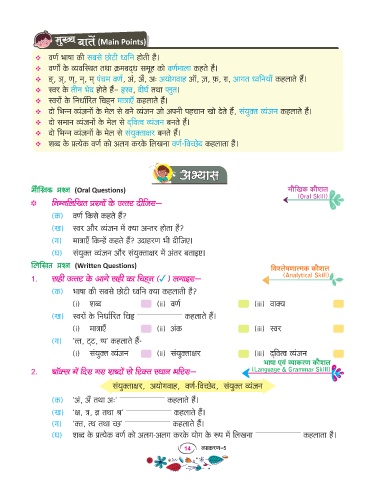 मुख्य बातें (Main Points)
❖ वर्ण भाषा की सबसे छोटी ध्वनि होती है।
❖ वर्णों के व्यवस्थित तथा क्रमबद्ध समूह को वर्णमाला कहते हैं।
❖ ङ्, ञ्, ण्, न्, म् पंचम वर्ण, अं, अँ, अः अयोगवाह ऑ, ज़, फ़, ग़, आगत ध्वनियाँ कहलाते हैं।
❖ स्वर के तीन भेद होते हैं– ह्रस्व, दीर्घ तथा प्लुत।
❖ स्वरों के निर्धारित चिह्न मात्राएँ कहलाते हैं।
❖ दो भिन्न व्यंजनों के मेल से बने व्यंजन जो अपनी पहचान खो देते हैं, संयुक्त व्यंजन कहलाते हैं।
❖ दो समान व्यंजनों के मेल से द्वित्व व्यंजन बनते हैं।
❖ दो भिन्न व्यंजनों के मेल से संयुक्ताक्षर बनते हैं।
❖ शब्द के प्रत्येक वर्ण को अलग करके लिखना वर्ण-विच्छेद कहलाता हैं।
अभ्यास
मौखिक प्रश्न (Oral Questions)
मौखिक कौशल
(Oral Skill)
❖ निम्नलिखित प्रश्नों के उत्तर दीजिए–
(क) वर्ण किसे कहते हैं?
(ख) स्वर और व्यंजन में क्या अन्तर होता है?
(ग) मात्राएँ किन्हें कहते हैं? उदाहरण भी दीजिए।
(घ) संयुक्त व्यंजन और संयुक्ताक्षर में अंतर बताइए।
लिखित प्रश्न (Written Questions)
विश्लेषणात्मक कौशल
(Analytical Skill)
1. सही उत्तर के आगे सही का चिह्न (✓) लगाइए–
(क) भाषा की सबसे छोटी ध्वनि क्या कहलाती है?
(i) शब्द (ii) वर्ण (iii) वाक्य
(ख) स्वरों के निर्धारित चिह्न ________ कहलाते हैं।
(i) मात्राएँ (ii) अंक (iii) स्वर
(ग) 'त्त, ट्ट, प्प' कहलाते हैं-
(i) संयुक्त व्यंजन (ii) संयुक्ताक्षर (iii) द्वित्व व्यंजन
भाषा एवं व्याकरण कौशल
(Language & Grammar Skill)
2. बॉक्स में दिए गए शब्दों से रिक्त स्थान भरिए–
संयुक्ताक्षर, अयोगवाह, वर्ण-विच्छेद, संयुक्त व्यंजन
(क) 'अं, अँ तथा अः' ________ कहलाते हैं।
(ख) 'क्ष, त्र, ज्ञ तथा श्र' ________ कहलाते हैं।
(ग) ________ कहलाते हैं।
(घ) शब्द के प्रत्येक वर्ण को अलग-अलग करके योग के रूप में लिखना ________ कहलाता हैं।
14 व्याकरण-5